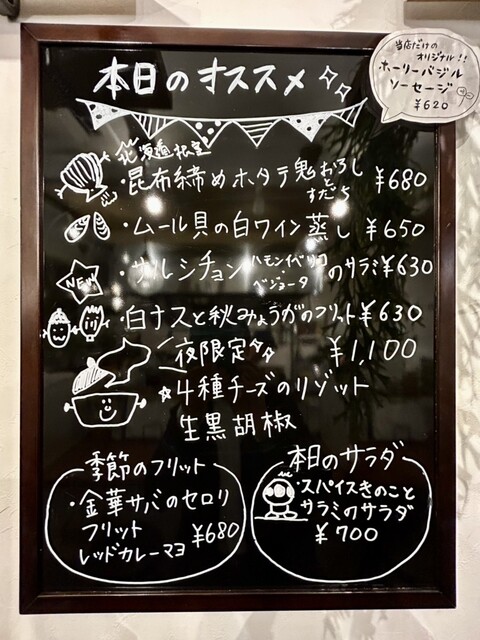 本日のオススメ
当店だけの
オリジナル!!
ホーリーバジル
ソーセージ
¥620
北海道根室
・昆布締めホタテ鬼おろしとすだち ¥680
・ムール貝の白ワイン蒸し ¥650
NEW
・サルシチョン ハモンイベリコ・ベジョータのサラミ ¥630
・白ナスと秋みょうがのフリット ¥630
夜限定 ¥1,100
☆4種チーズのリゾット
生黒胡椒
季節のフリット
・金華サバのセロリ
フリット
レッドカレーマヨ ¥680
本日のサラダ
・スパイスきのこと
サラミのサラダ
¥700